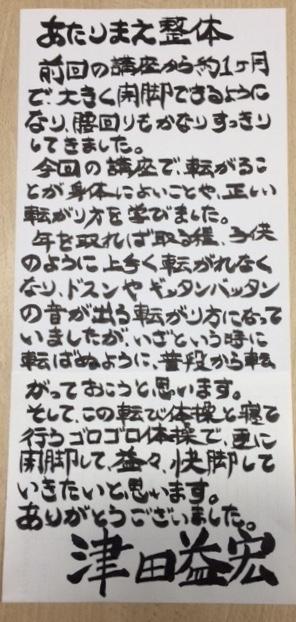 あたりまえ整体
前回の講座から約1ヶ月
で、大きく開脚できるように
なり、腰回りもかなりすっきり
してきました。
今回の講座で、転がるこ
とが身体によいことや、正しい
転がり方を学びました。
年を取れば取る程、子供
のように上手く転がれなく
なり、ドスンやギッタンバッタン
の音が出る転がり方になって
いましたが、いざという時に
転ばぬように、普段から転
がっておこうと思います。
そして、この転び体操と寝て
行うゴロゴロ体操で、更に
開脚して、益々、快脚して
いきたいと思います。
ありがとうございました。
津田益宏